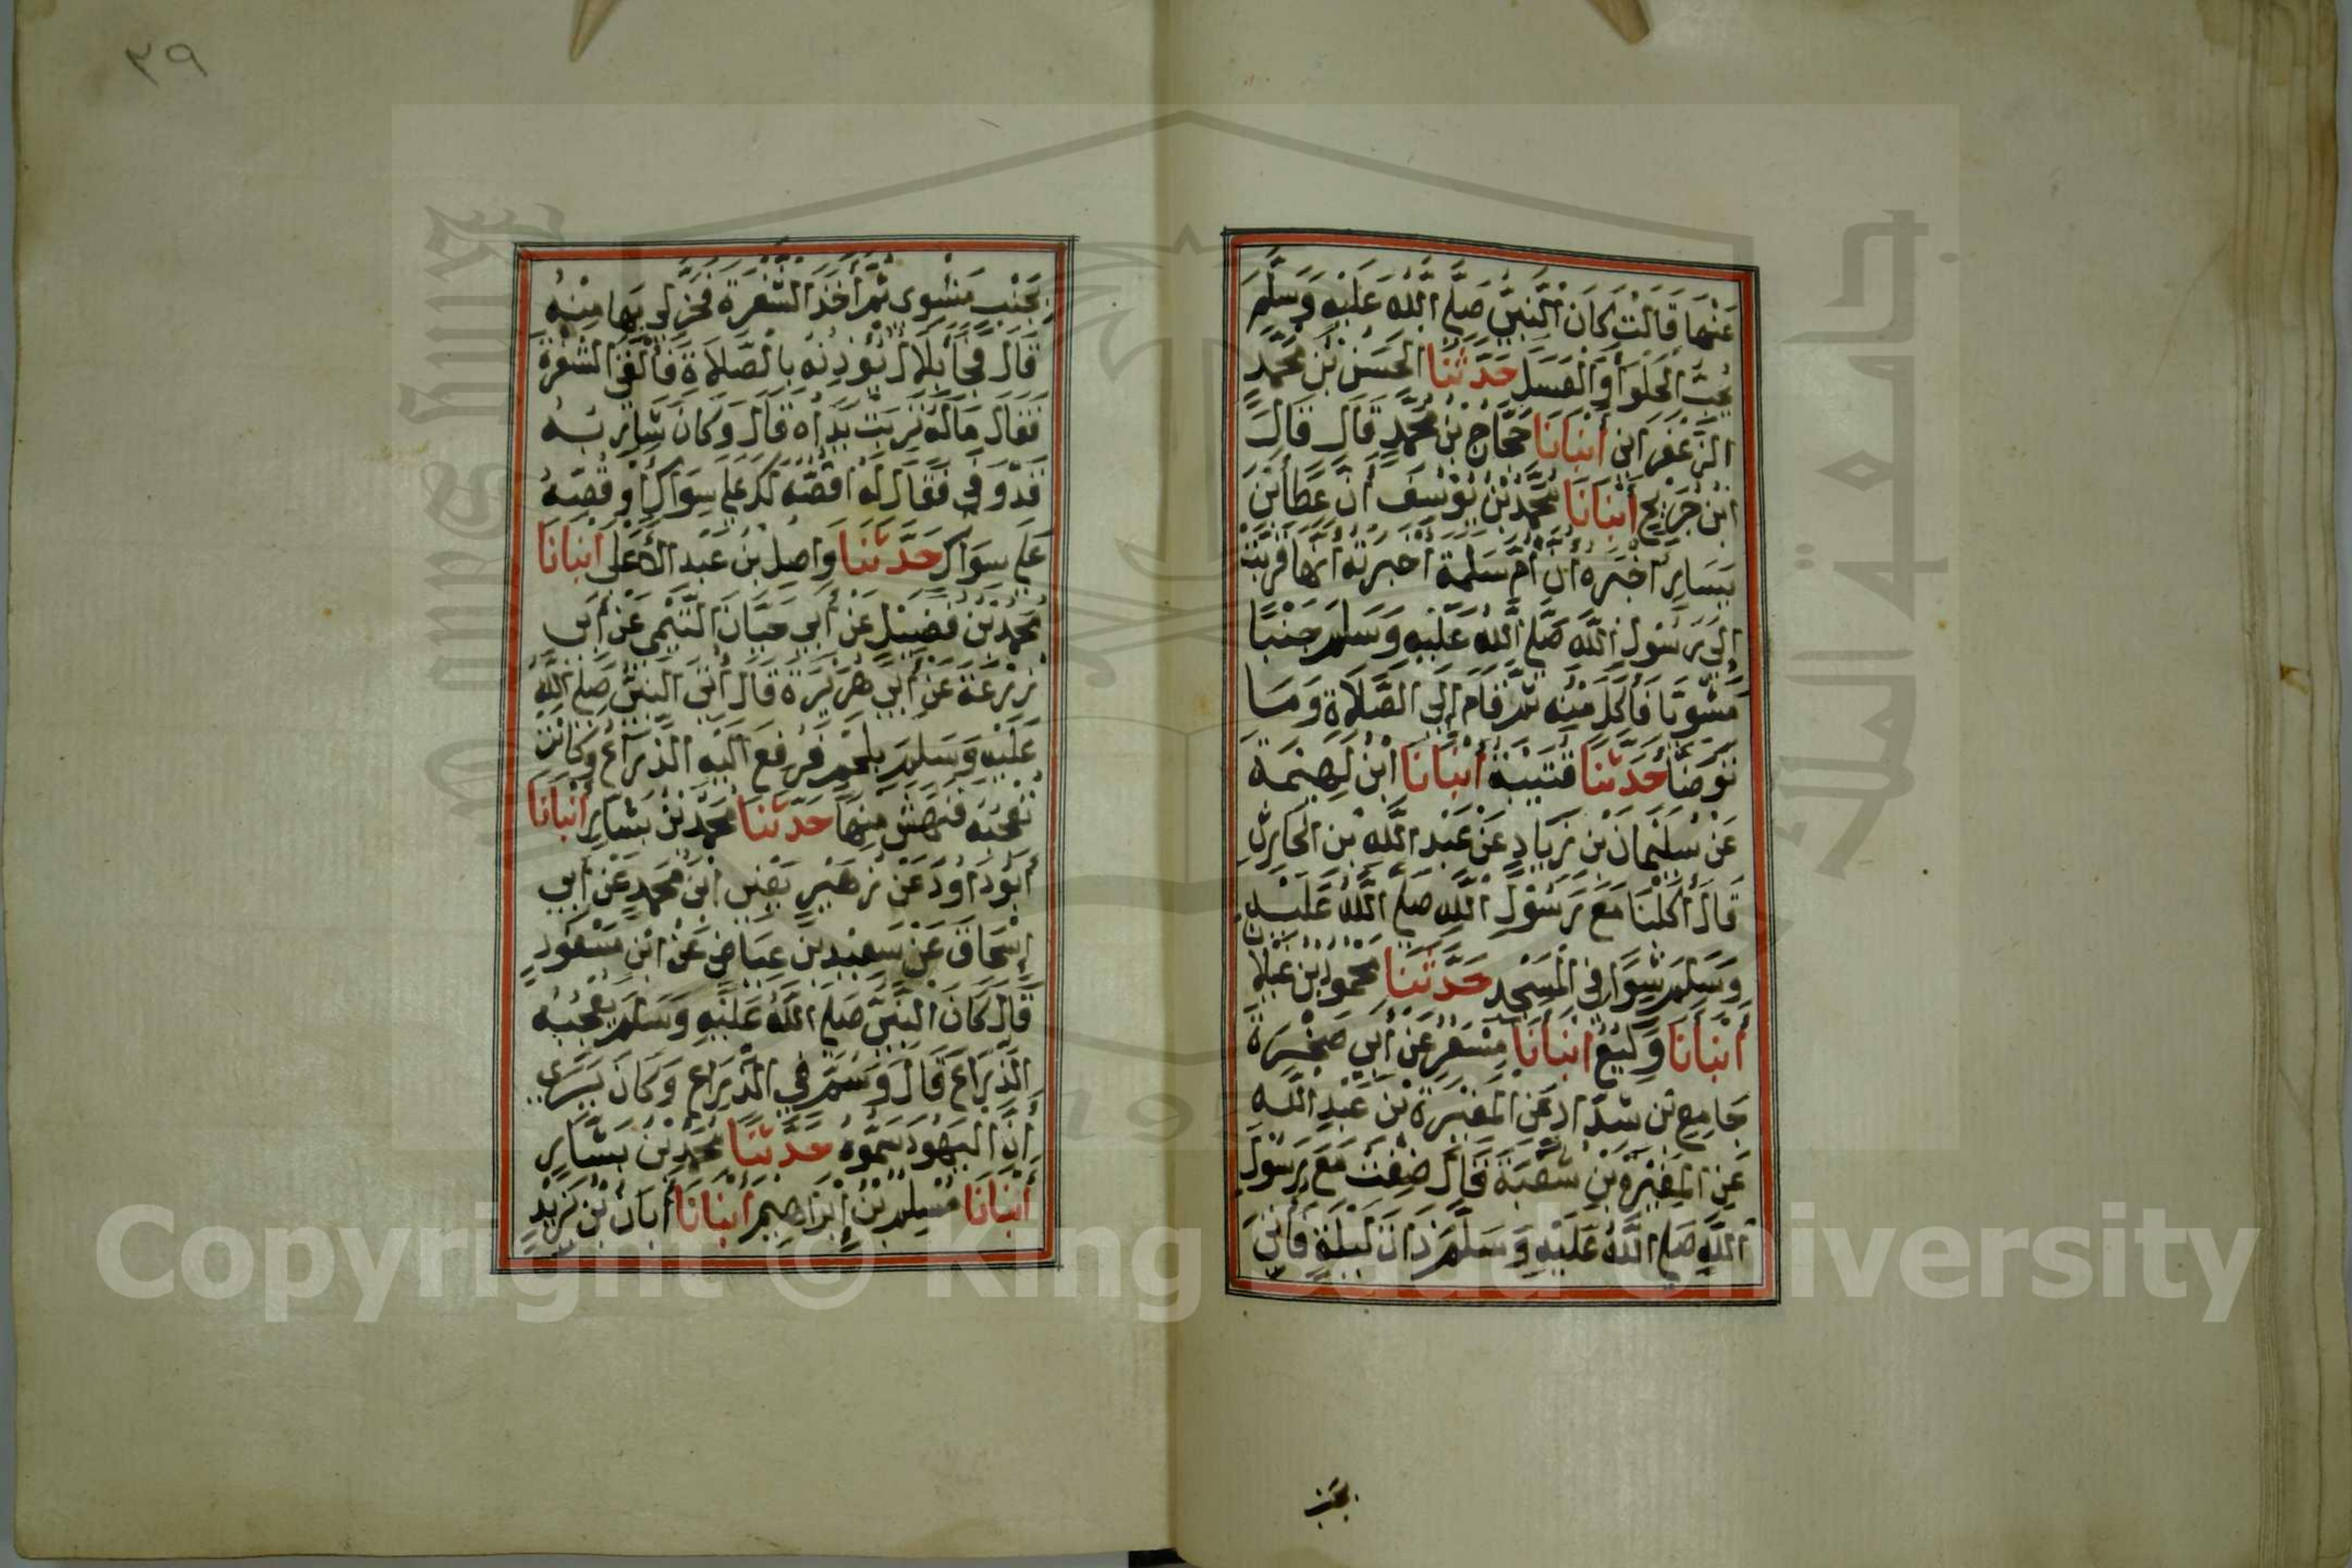 عَنْهَا قَالَتْ كَانَ النَّبِيُّ صَلَّى اللَّهُ عَلَيْهِ وَسَلَّمَ
يُحِبُّ الْحَلْوَا وَالْعَسَلَ حَدَّثَنَا الْحَسَنُ بْنُ مُحَمَّدٍ
الزَّعْفَرَانِي أَنْبَانَا حَجَّاجُ بْنُ مُحَمَّدٍ قَالَ قَالَ
ابْنُ جُرَيْجٍ أَنْبَانَا مُحَمَّدُ بْنُ يُوسُفَ أَنَّ عَطَأَ بْنَ
يَسَارٍ أَخْبَرَهُ أَنَّ أُمَّ سَلَمَةَ أَخْبَرَتْهُ أَنَّهَا قَرَّبَتْ
إِلَى رَسُولِ اللَّهِ صَلَّى اللَّهُ عَلَيْهِ وَسَلَّمَ جَنْبًا
مَشْوِيًّا فَأَكَلَ مِنْهُ ثُمَّ قَامَ إِلَى الصَّلَاةِ وَمَا
تَوَضَّأَ حَدَّثَنَا قُتَيْبَةُ أَنْبَانَا ابْنُ لَهِيعَةَ
عَنْ سُلَيْمَانَ بْنِ زِيَادٍ عَنْ عَبْدِ اللَّهِ بْنِ الْحَارِثِ
قَالَ أَكَلْنَا مَعَ رَسُولِ اللَّهِ صَلَّى اللَّهُ عَلَيْهِ
وَسَلَّمَ شِوَاءً فِي الْمَسْجِدِ حَدَّثَنَا مَحْمُودُ بْنُ غَيْلَانَ
أَنْبَانَا وَكِيْعٌ أَنْبَانَا مِسْعَرٌ عَنْ أَبِي صَخْرَةَ
جَامِعِ بْنِ شَدَّادٍ عَنِ الْمُغِيْرَةِ بْنِ عَبْدِ اللَّهِ
عَنِ الْمُغِيْرَةِ بْنِ شُعْبَةَ قَالَ ضِفْتُ مَعَ رَسُولِ
اللَّهِ صَلَّى اللَّهُ عَلَيْهِ وَسَلَّمَ ذَاتَ لَيْلَةٍ فَأُتِيَ
بجنب
٣٩
بِجَنْبٍ مَشْوِى ثُمَّ أَخَذَ الشَّفْرَةَ فَحَزَّ لِي بِهَا مِنْهُ
قَالَ فَجَأَ بِلَالٌ يُؤْذِنُهُ بِالصَّلَاةِ فَأَلْقَى الشَّفْرَةَ
فَقَالَ مَا لَهُ تَرِبَتْ يَدَاهُ قَالَ وَكَانَ شَارِبُهُ
قَدْ وَفَى فَقَالَ لَهُ أَقُصُّهُ لَكَ عَلَى سِوَاكٍ أَوْ قُصَّهُ
عَلَى سِوَاكٍ حَدَّثَنَا وَاصِلُ بْنُ عَبْدِ الأَعْلَى أَنْبَانَا
مُحَمَّدُ بْنُ فُضَيْلٍ عَنْ أَبِي حَيَّانَ التَّيْمِي عَنْ أَبِي
زُرْعَةَ عَنْ أَبِي هُرَيْرَةَ قَالَ أُتِيَ النَّبِيُّ صَلَّى اللَّهُ
عَلَيْهِ وَسَلَّمَ بِلَحْمٍ فَرُفِعَ الَيْهِ الذِّرَاعُ وَكَانَتْ
تُعْجِبُهُ فَنَهَشَ مِنْهَا حَدَّثَنَا مُحَمَّدُ بْنُ بَشَّارٍ أَنْبَانَا
أَبُو دَاوُدَ عَنْ زُهَيْرٍ يَعْنِي ابْنَ مُحَمَّدٍ عَنْ أَبِي
إِسْحَاقَ عَنْ سَعِيْدِ بْنِ عِيَاضٍ عَنْ ابْنِ مَسْعُودٍ
قَالَ كَانَ النَّبِيُّ صَلَّى اللَّهُ عَلَيْهِ وَسَلَّمَ يُعْجِبُهُ
الذِّرَاعُ قَالَ وَسُمَّ فِي الذِّرَاعِ وَكَانَ يَرَى
أَنَّ الْيَهُودَ سَمُّوهُ حَدَّثَنَا مُحَمَّدُ بْنُ بَشَّارٍ
أَنْبَانَا مُسْلِمُ بْنُ إِبْرَاهِيمَ أَنْبَانَا أَبَانُ بْنُ يَزِيْدَ
جامعة الملك سعود
1957
Copyright © King Saud University